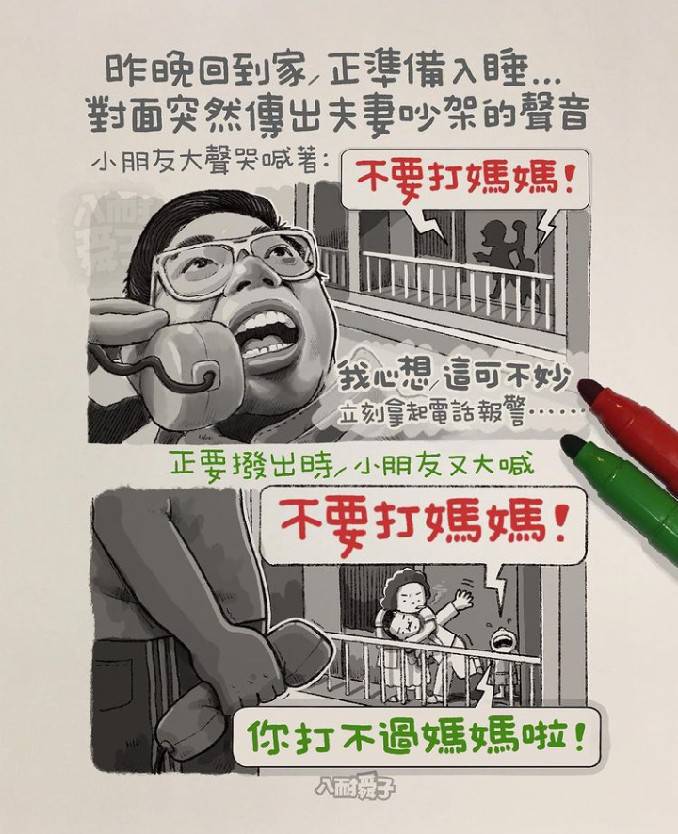 昨晚回到家，正準備入睡...
對面突然傳出夫妻吵架的聲音
小朋友大聲哭喊著：
不要打媽媽！
八耐舜子
我心想，這可不妙
立刻拿起電話報警……
正要撥出時，小朋友又大喊
不要打媽媽！
你打不過媽媽啦！
八耐舜子